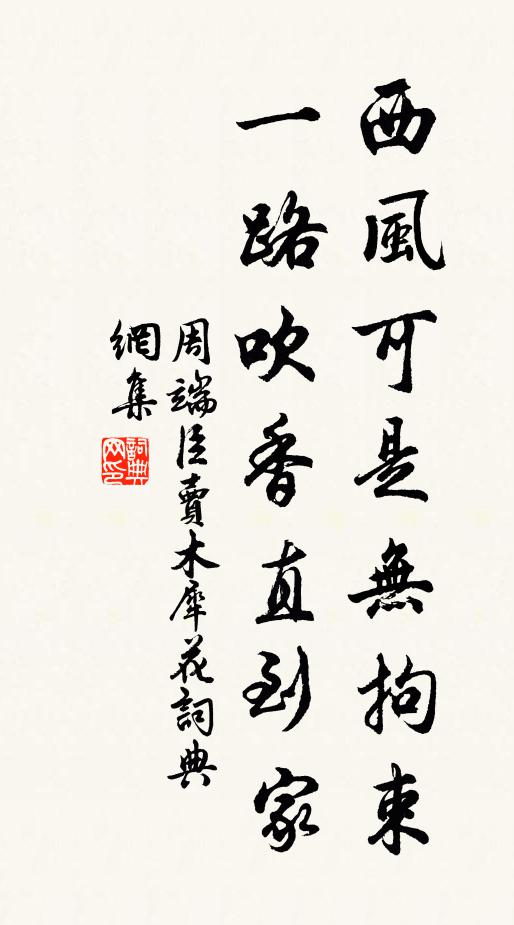 西風可是無拘束
一路吹香直到家
周端臣賣木犀花詞典
網集
詞典網印